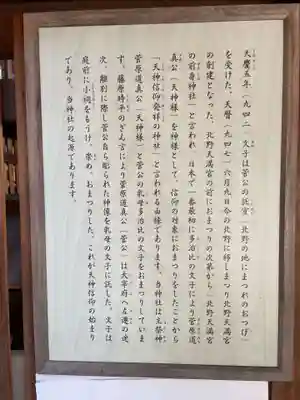 天慶五年(九四二)文子は菅公の託宣「北野の地にまつれのおつげ」
を受けた、天暦(九四七)六月九日今の北野に移しまつり北野天満宮
の創建となった、北野天満宮の前におまつりの次第から「北野天満宮
の前身神社」と言われ 日本で一番最初に多治比の文子により菅原道
真公(天神様)を神様として、信仰の対象におまつりをしたことから
「天神信仰発祥の神社」と言われる由縁であります。当神社は主祭神
菅原道真公(天神様)と菅公の乳母多治比の文子をおまつりしていま
す。藤原時平のざん言により菅原道真公(菅公)は大宰府へ左遷の途
次、離別に際し菅公自ら彫られた神像を乳母の文子に託した。文子は
庭前に小祠をもうけ、崇め、おまつりした。これが天神信仰の始まり
であり、当神社の起源であります。